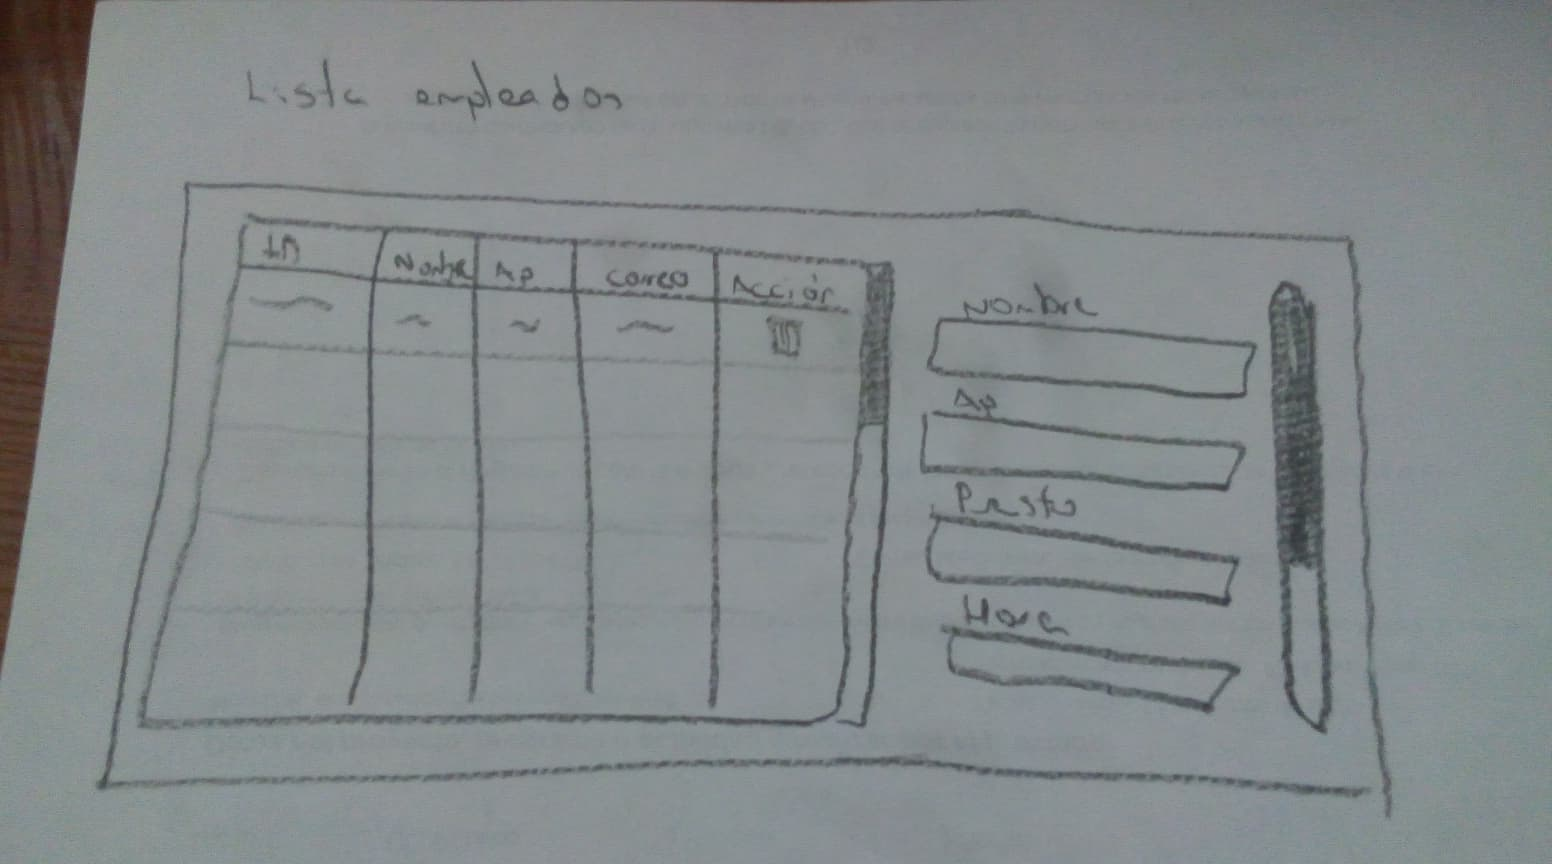 Lista empleados
ID Nombre Ap Correo Acción
Nombre
Ap
Puesto
Hora